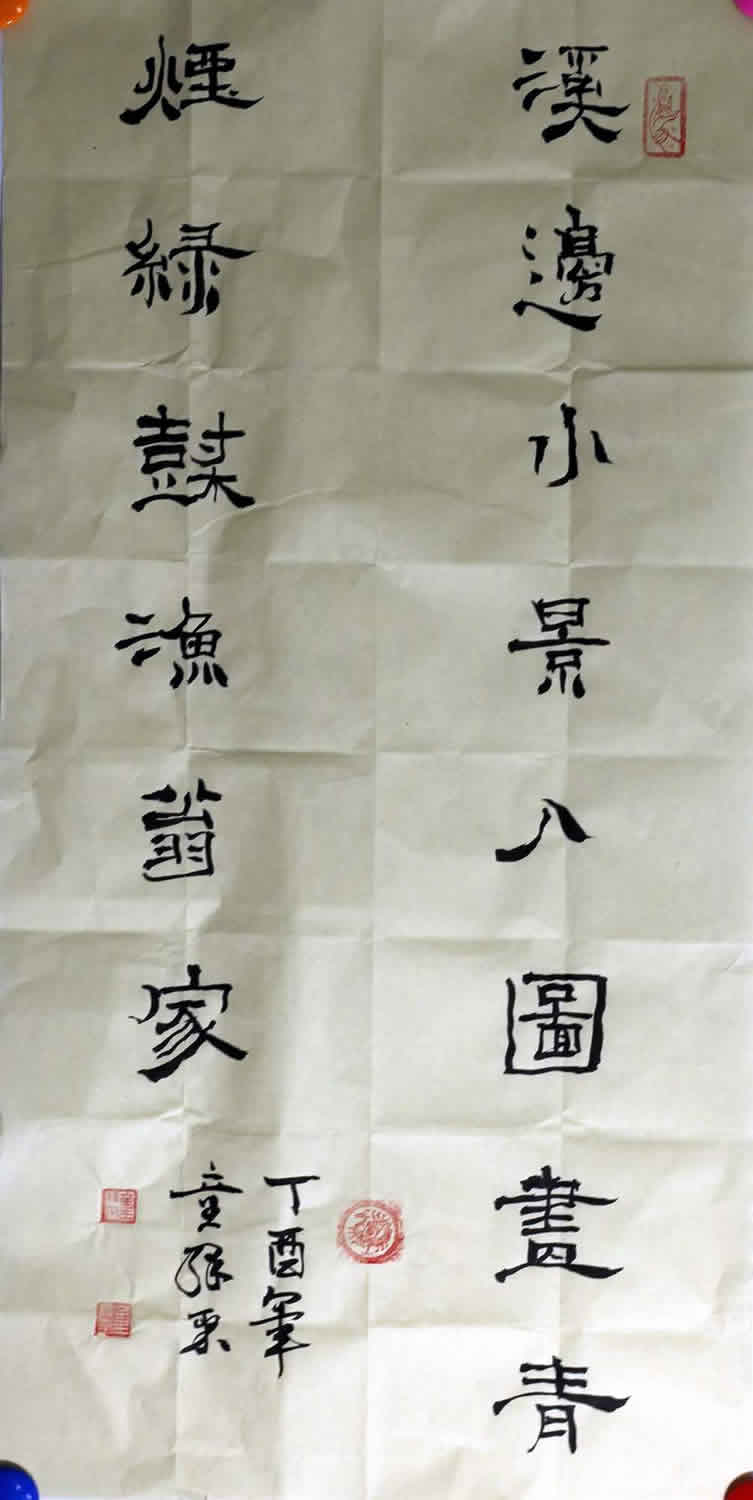 溪邊小景入圖畫青
煙緑樹漁翁家
丁酉年
童